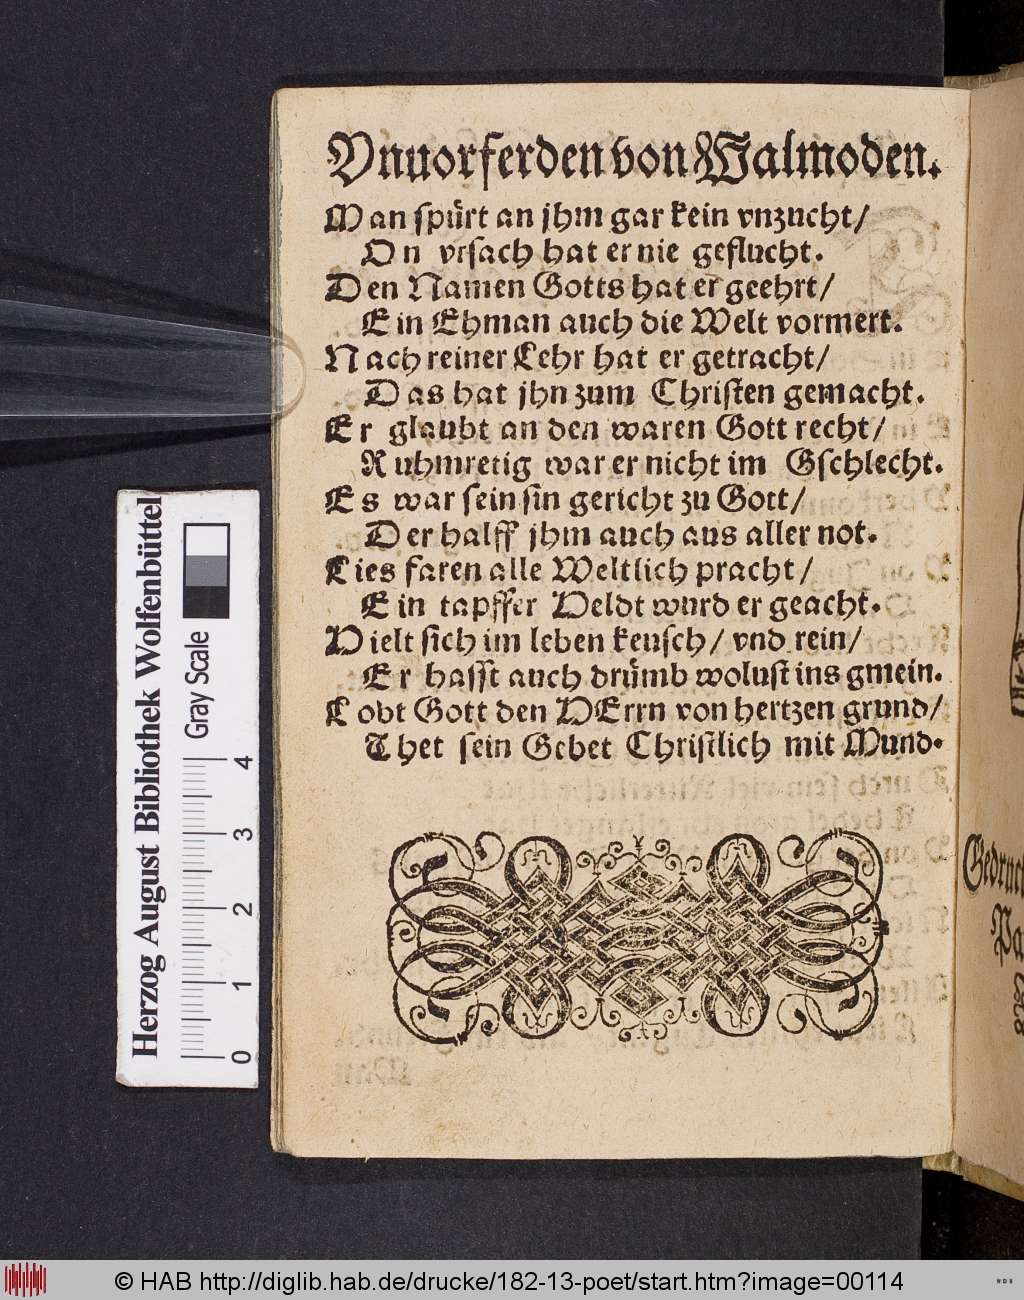 Vnuorferden von Walmoden.
Man spürt an jhm gar kein vnzucht/
On vrsach hat er nie geflucht.
Den Namen Gotts hat er geehrt/
Ein Ehman auch die Welt vormert.
Nach reiner Lehr hat er getracht/
Das hat jhn zum Christen gemacht.
Er glaubt an den waren Gott recht/
Ruhmretig war er nicht im Gschlecht.
Es war sein sin gericht zu Gott/
Der halff jhm auch aus aller not.
Lies faren alle Weltlich pracht/
Ein tapffer Heldt wurd er geacht.
Hielt sich im leben keusch/ vnd rein/
Er hasst auch drümb wolust ins gmein.
Lobt Gott den HErrn von hertzen grund/
Thet sein Gebet Christlich mit Mund.
Herzog August Bibliothek Wolfenbüttel
Gray Scale
0 1 2 3 4
Gedruck
Pa
© HAB http://diglib.hab.de/drucke/182-13-poet/start.htm?image=00114